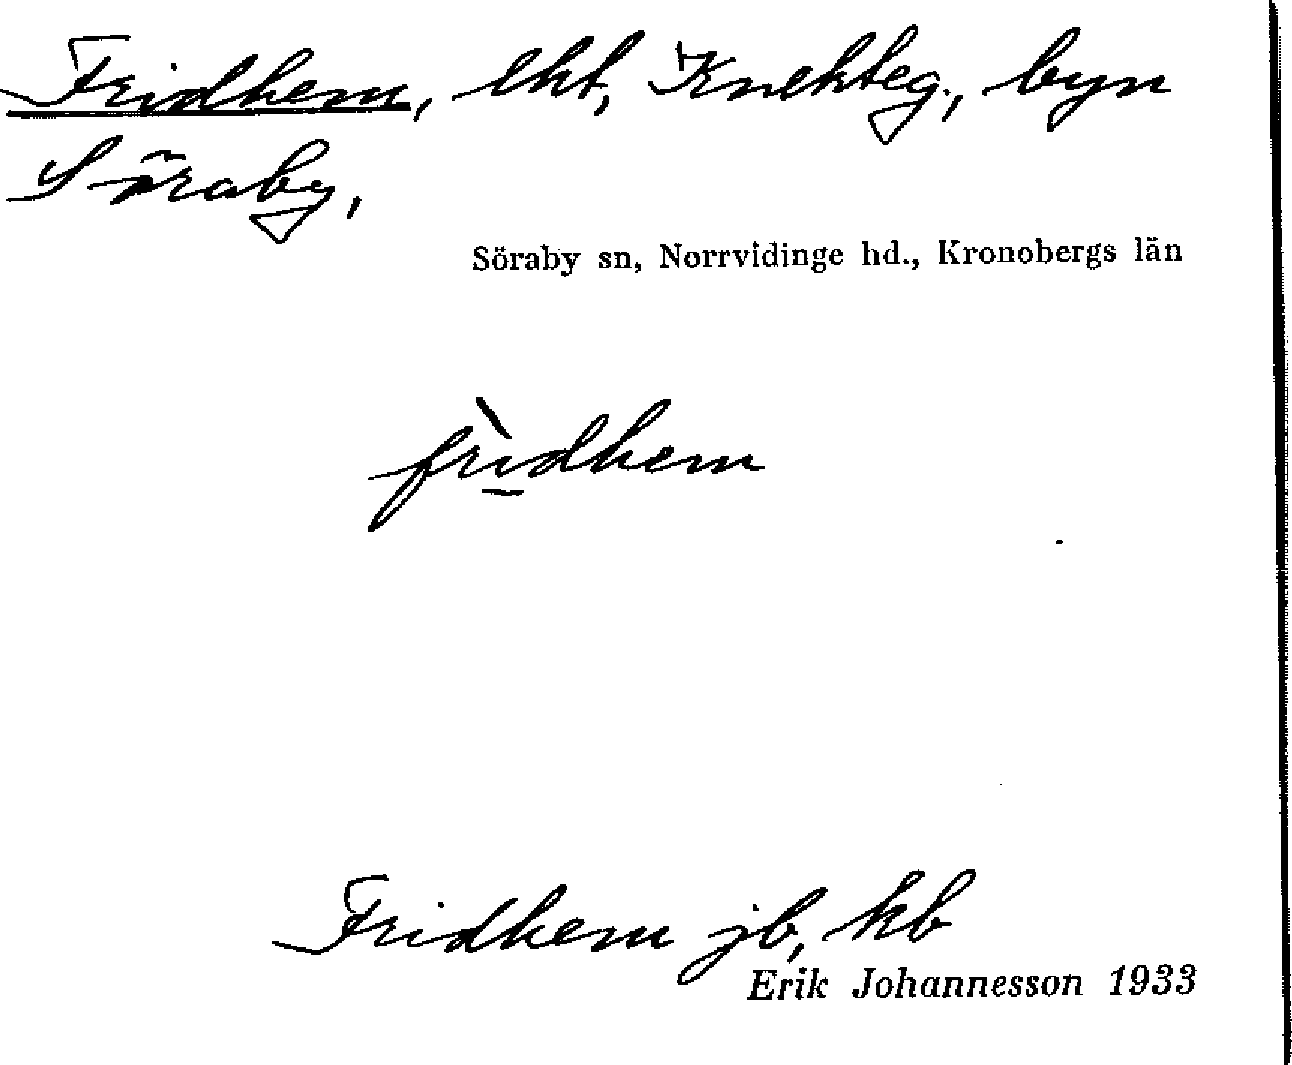 Fridhem, lht, Knekteg., byn
Söraby,
Söraby sn, Norrvidinge hd., Kronobergs län
frìdhem
Fridhem jb, kb
Erik Johannesson 1933